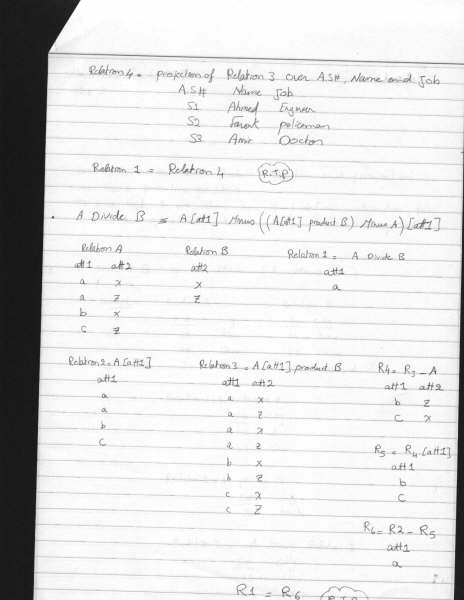 Relation 4 = projection of Relation 3 over A.S#, Name and Job
A.S# Name Job
S1 Ahmed Engineer
S2 Farouk policeman
S3 Amr Doctor
Relation 1 = Relation 4 R.T.P
. A Divide B = A[att1] Minus ((A[att1] product B) Minus A)[att1]
Relation A
att1 att2
a x
a z
b x
c z
Relation B
att2
x
z
Relation 1 = A Divide B
att1
a
Relation 2 = A[att1]
att1
a
a
b
c
Relation 3 = A[att1] product B
att1 att2
a x
a z
a x
a z
b x
b z
c x
c z
R4 = R3 - A
att1 att2
b z
c x
R5 = R4[att1]
att1
b
c
R6 = R2 - R5
att1
a
R1 = R6 R.T.P